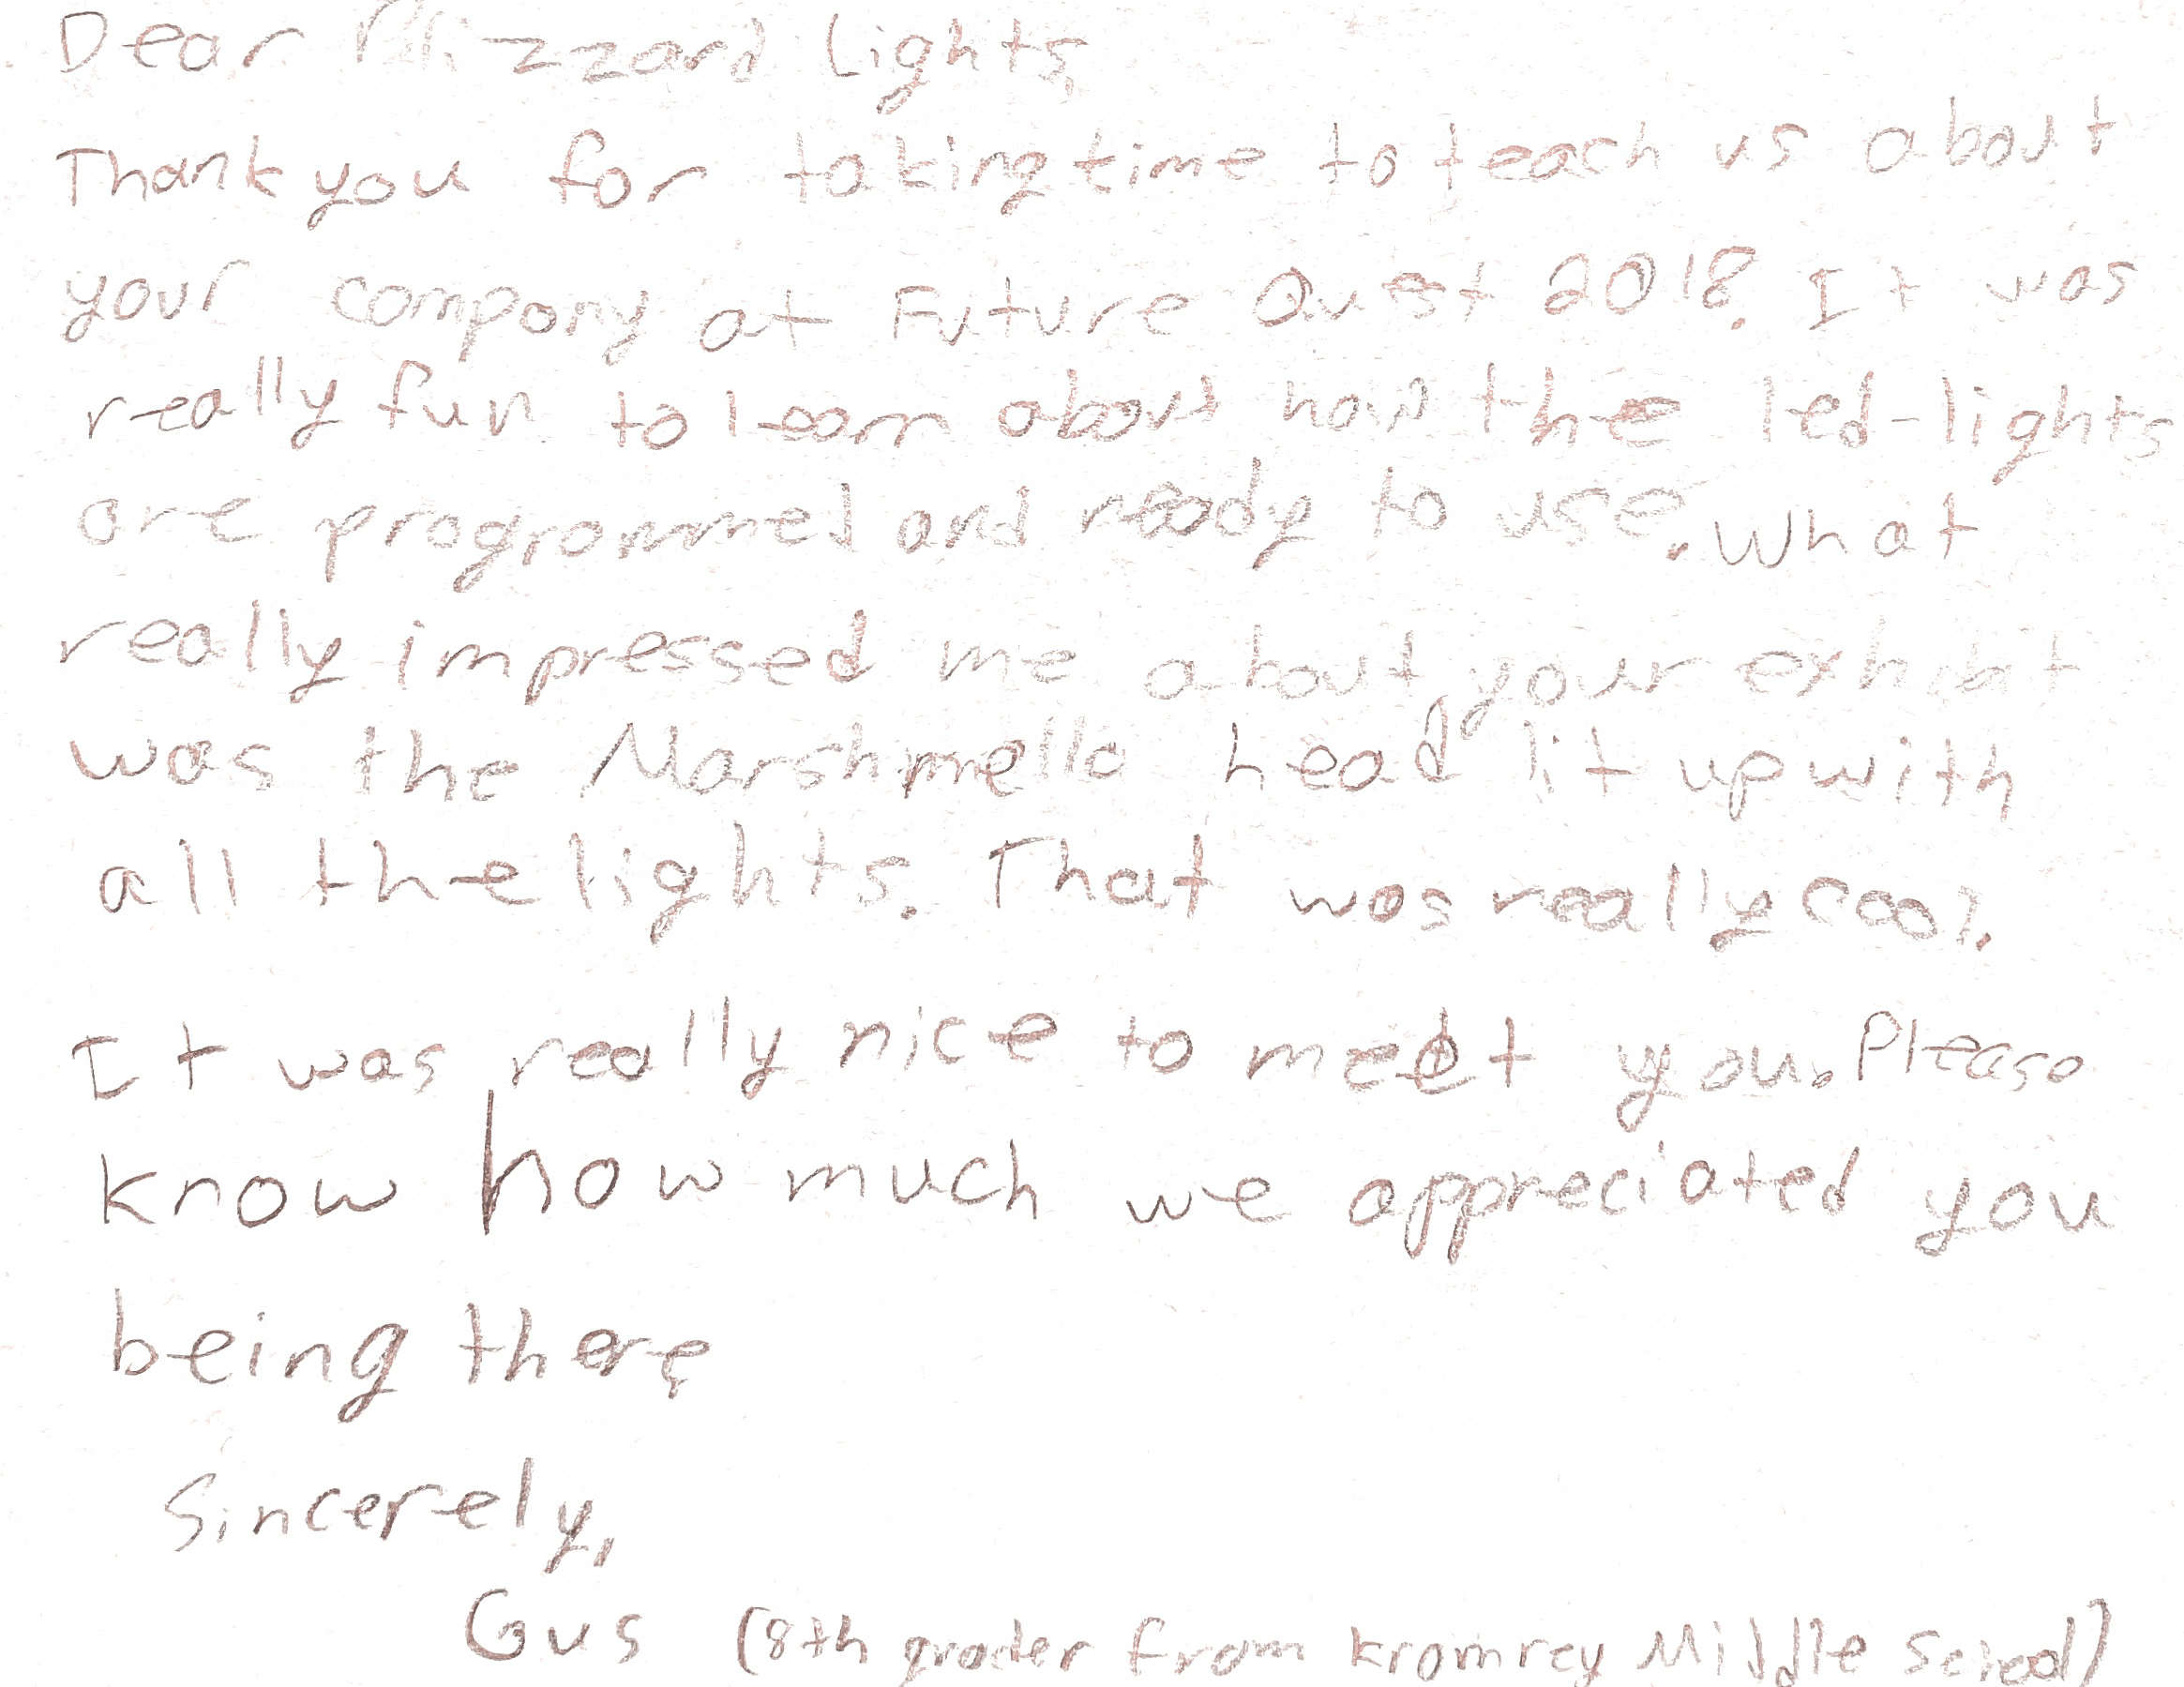 Dear Blizzard Lights,
Thank you for taking time to teach us about
your company at Future Quest 2018. It was
really fun to learn about how the led-lights
are programmed and ready to use. What
really impressed me about your exhibit
was the Marshmello head lit up with
all the lights. That was really cool.
It was really nice to meet you. Please
know how much we appreciated you
being there,
Sincerely,
Gus (8th grader from Kromrey Middle School)